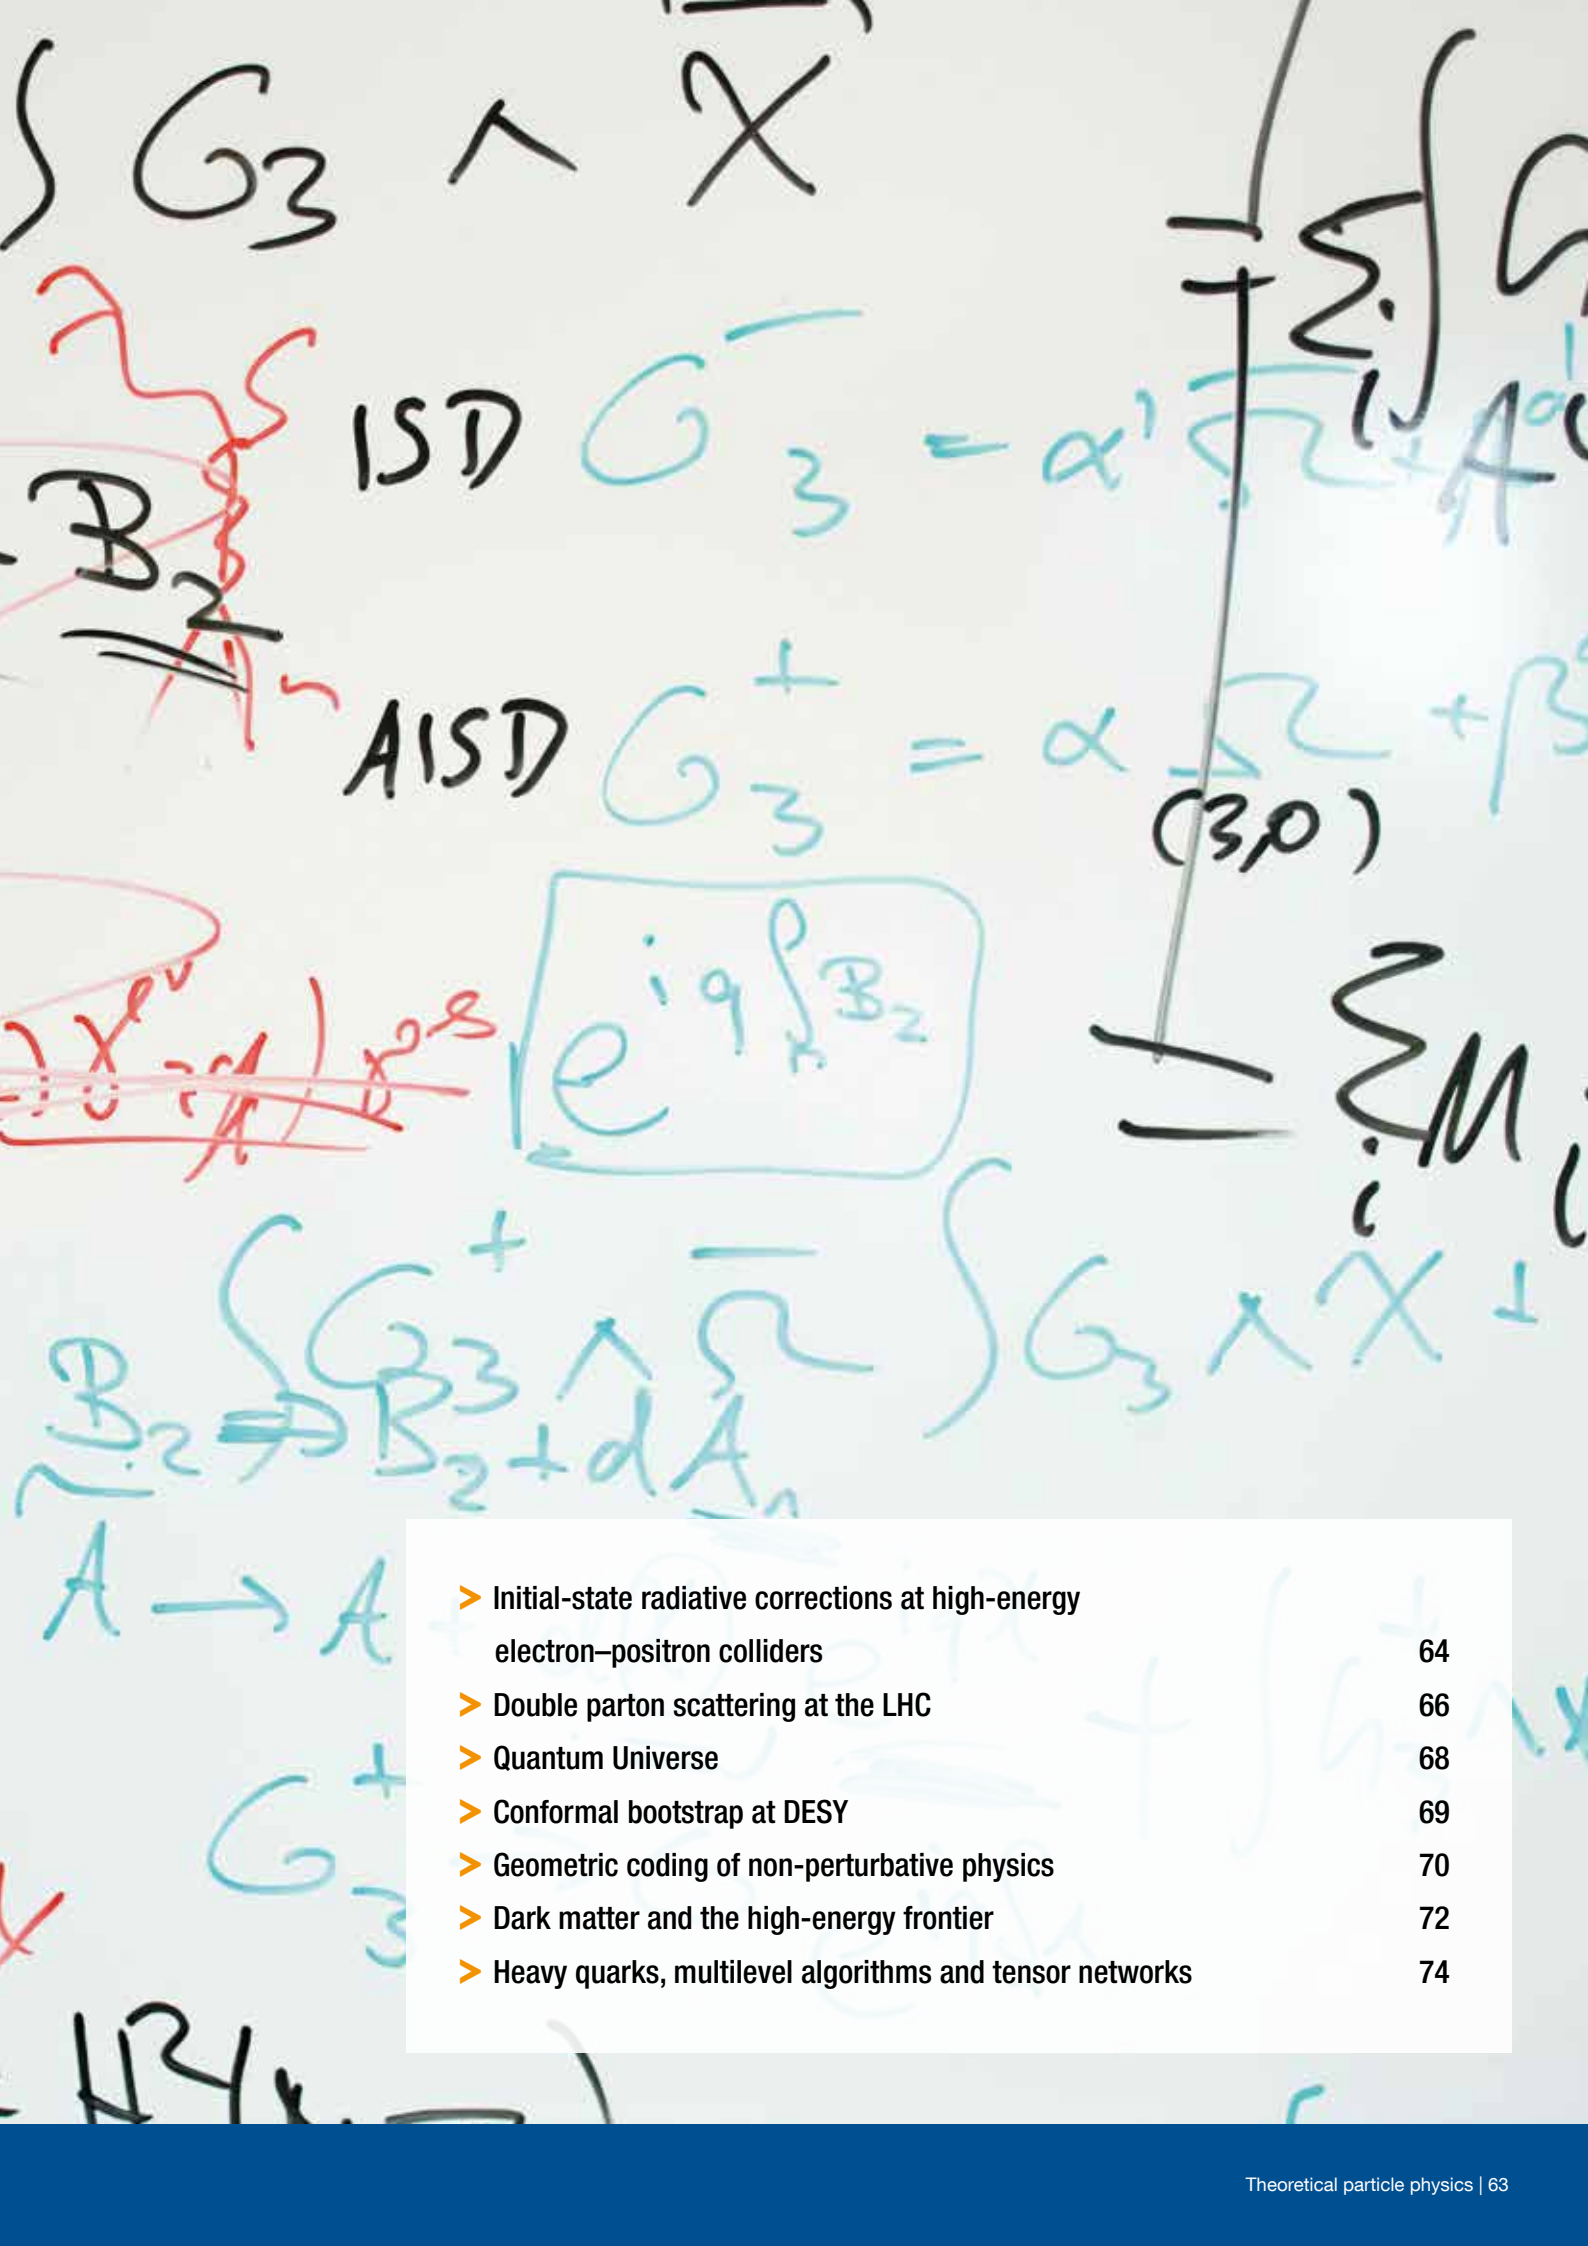 ∫ G₃ ∧ X̅
= Σᵢ ∫
ISD G₃⁻ = α' Ω̅ +
B₂
AISD G₃⁺ = α Ω + β
(3,0)
e^{iq∫B₂}
= Σᵢ M
∫ G₃⁺ ∧ Ω̅ ∫ G₃ ∧ X +
B₂ ⇒ B₂ + dA
A → A
G₃⁺
> Initial-state radiative corrections at high-energy
electron–positron colliders 64
> Double parton scattering at the LHC 66
> Quantum Universe 68
> Conformal bootstrap at DESY 69
> Geometric coding of non-perturbative physics 70
> Dark matter and the high-energy frontier 72
> Heavy quarks, multilevel algorithms and tensor networks 74
Theoretical particle physics | 63